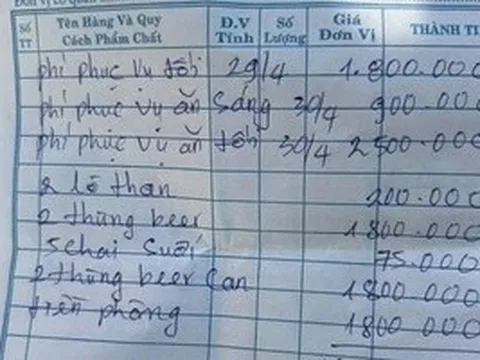 Số TT Tên Hàng Và Quy Cách Phẩm Chất Đ.V Tính Số Lượng Giá Đơn Vị THÀNH TI
phí phục vụ tối 29/4 1.800.000
phí phục vụ ăn sáng 30/4 900.000
phí phục vụ ăn tối 30/4 2500.000
2 lò than 200.000
2 thùng beer 1800.000
5 chai suối 75.000
2 thùng beer can 1800 000
tiền phòng 1800 000